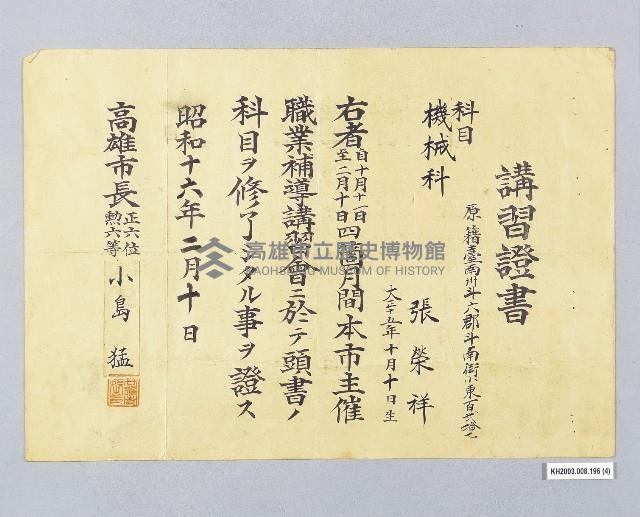 講習證書
原籍臺南州斗六郡斗南街小東百廿拾七
科目
機械科
張榮祥
大正十五年十月十日生
右者自十月十一日至二月十日四箇月間本市主催
職業補導講習會ニ於テ頭書ノ
科目ヲ修了シタル事ヲ證ス
昭和十六年二月十日
高雄市長正六位勲六等小島猛
高雄市立歷史博物館
KAOHSIUNG MUSEUM OF HISTORY
KH2003.008.196 (4)